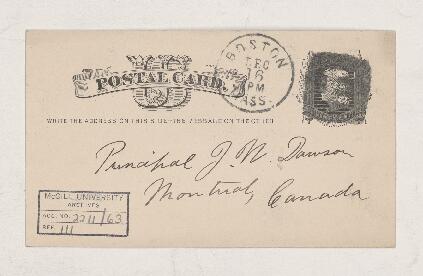 BOSTON
DEC
6
PM
MASS.
POSTAL CARD.
WRITE THE ADDRESS ON THIS SIDE-THE MESSAGE ON THE OTHER
Principal J. W. Dawson
Montreal, Canada
McGILL UNIVERSITY
ARCHIVES
ACC. NO. 2211/63
REF. 111